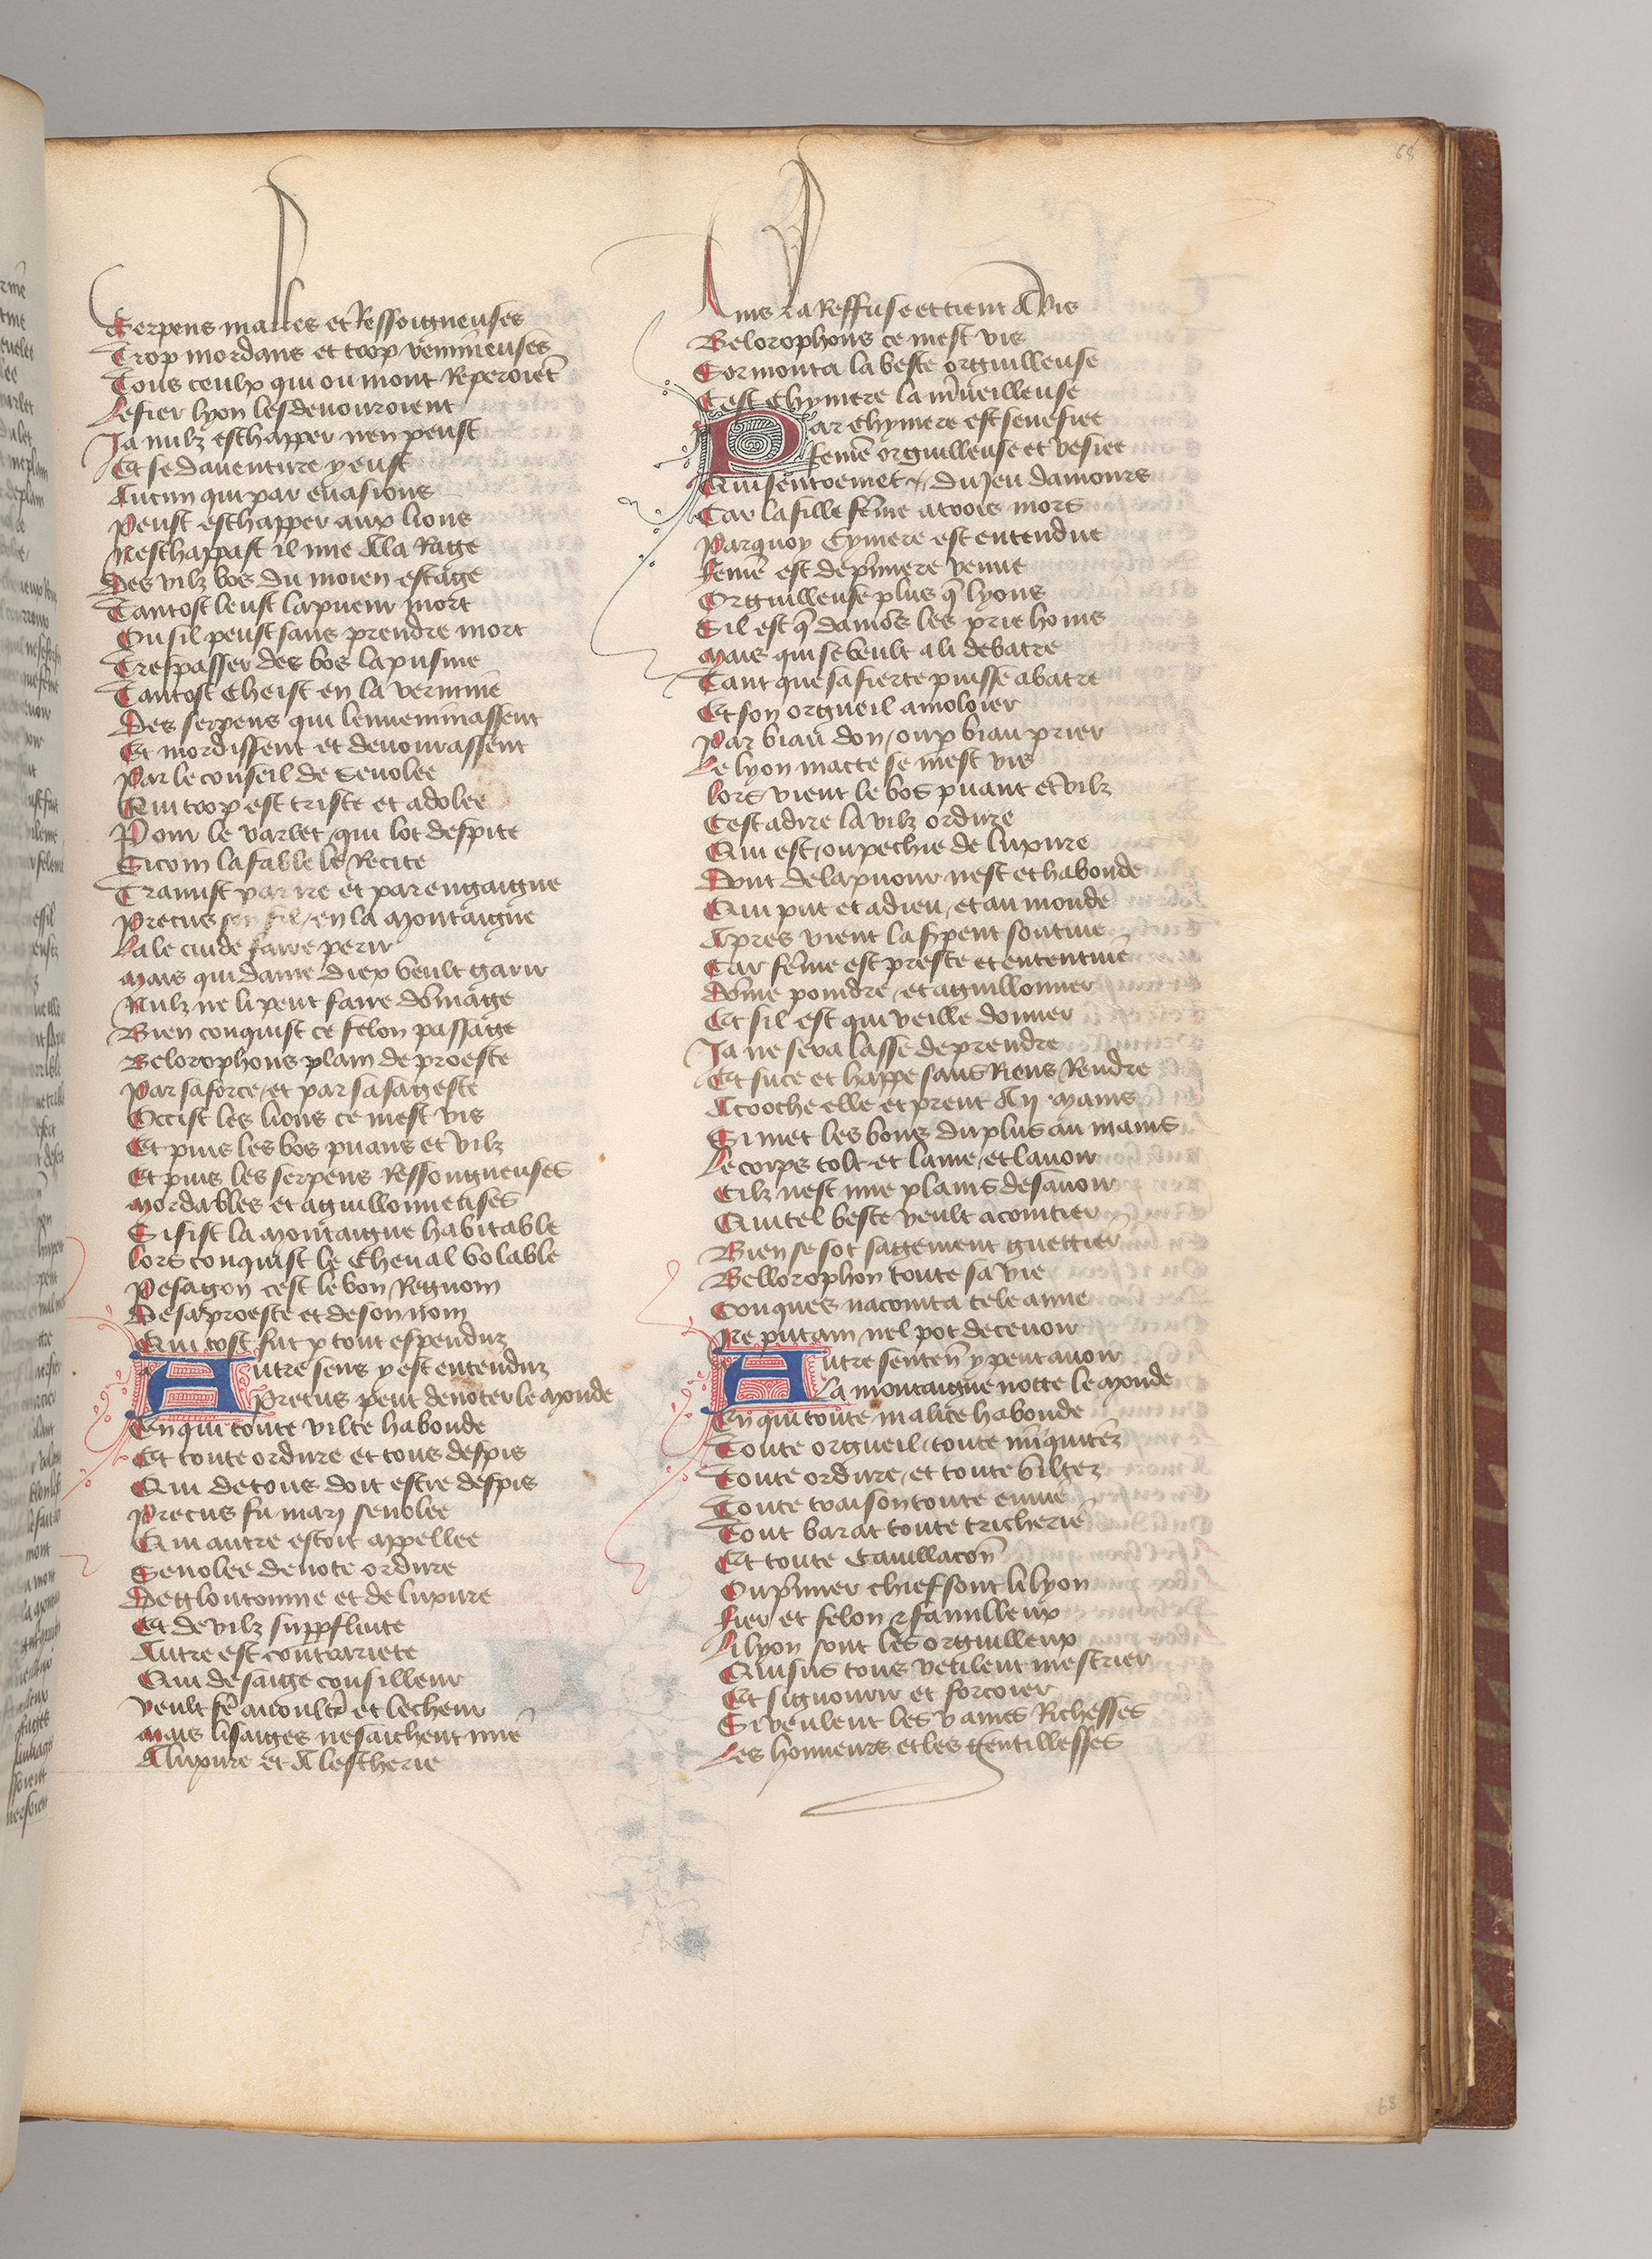 68
Serpens malles et Ressoigneuses
Trop mordans et trop venimeuses
Tous ceulx qui ou mont Reperoient
Le fier lyon les devouroient
Ja nulz eschapper nen peust
Et se daventure y eust
Aucun qui par evasions
Peust eschapper aux lions
Neschappast il mie A la Rage
Des vilz bos du moien estage
Tantost leust la pueur mort
Ou sil peust sans prendre mort
Trespasser des bos la pusine
Tantost Cheist en la vermine
Des serpens qui lenveninassent
Et mordissent et devourassent
Par le conseil de Senolee
Qui trop est triste et adolee
Pour le varlet qui lot despite
Sicom la fable le Recite
Tramist par ire et par engaigne
Pretus en la Montaigne
La le cuide faire perir
Mais qui dame diex veult garir
Nulz ne li peut faire domage
Bien conquist ce felon passage
Belorophons plain de proeste
Par sa force et par sa sageste
Occist les lions ce mest vis
Et puis les bos puans et vilz
Et puis les serpens Ressongneuses
Mordables et aguillonneuses
Si fist la Montaigne habitable
Lors conquist le Cheval volable
Pesagon cest le bon Regnom
De sa proeste et de son nom
Qui tost fut p tout espenduz
Autre sens y est entenduz
Pretus peut denoter le Monde
En qui toute vilte habonde
Et toute ordure et tous despis
Qui de tous doit estre despis
Pretus fu mary senolee
Qui autre estoit appellee
Senolee denote ordure
De gloutonnie et de luxure
Et de vilz supfluite
Autre est contrariete
Qui de saige consilleur
Veult fe avoultr et lecheur
Mais li saiges nesaichent mie
A luxure et A lescherie
Ains la Reffuse et tient A vis
Belorophons ce mest vis
Sormonta la beste orguilleuse
Cest Chymere la mveilleuse
Par Chymere est senefiee
Feme orguilleuse et vesiee
Qui sentremet du Jeu damours
Car la fille feme a trois mors
Par quoy Cymere est entendue
Feme est de pmiere venue
Orguilleuse plus q lyons
Sil est q damors les prie homs
Mais qui se veult a li debatre
Tant que sa fierte puisse abatre
Et son orgueil amoloier
Par biau don ou p biau prier
Le lyon matte se mest vis
Lors vient le bos puant et vilz
Cest adire la vilz ordure
Qui est ou pechie de luxure
Dont de la puour nest et habonde
Qui put et a dieu et au monde
Apres vient la spent soutive
Car feme est preste et ententive
Dome poindre et aguillonner
Et sil est qui veille donner
Ja ne sera lasse de prendre
Et suce et happe sans Riens Rendre
Acroche elle et prent A ii mains
Si met les bons du plus au mains
Le corps tolt et lame et lavoir
Cilz nest mie plains de savoir
Qui tel beste veult acointier
Bien se sot sagement guettier
Bellorophon toute sa vie
Conques nacointa tele amie
Ne putain nel pot decevoir
Autre senten y peut avoir
La montaigne notte le Monde
En qui toute malice habonde
Toute orgueil toute iniquitez
Toute ordure et toute viltez
Toute traison toute envie
Tout barat toute tricherie
Et toute Cavillacon
Ou pmier chief sont li lyon
Fier et felon & familleux
Li lyon sont les orguilleux
Qui sus tous veulent mestrier
Et signourir et forcoier
Si veulent les vaines Richesses
Les honneurs et les gentillesses
68